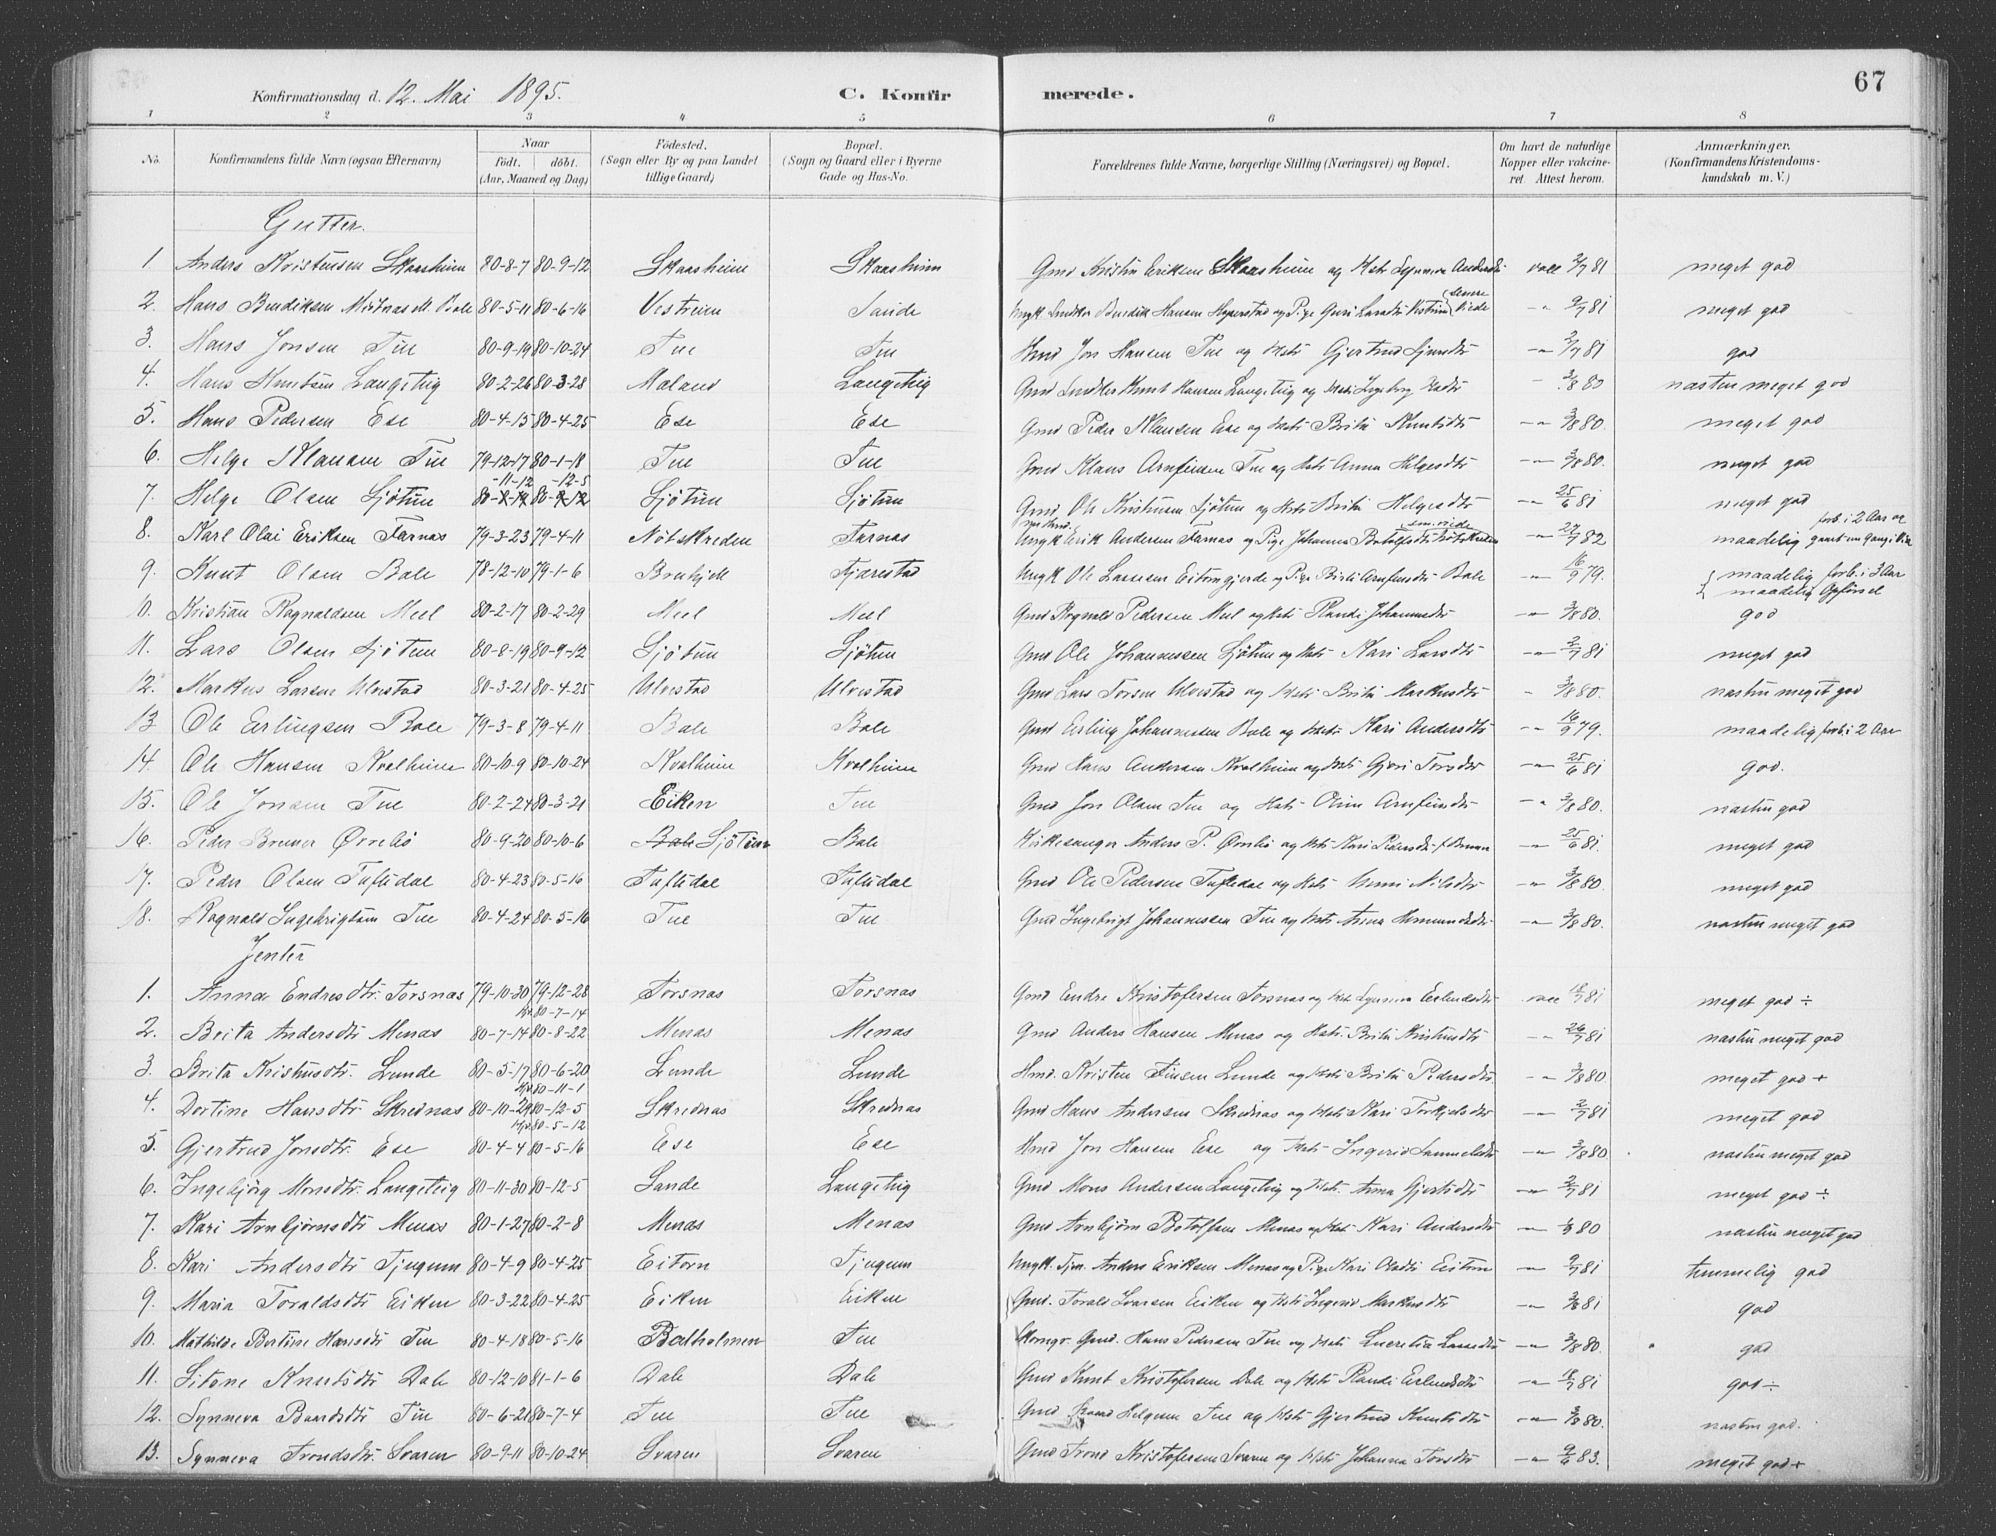 67
Konfirmationsdag d. 12. Mai 1895. C. Konfirmerede.
1 2 3 4 5 6 7 8
No. Konfirmandens fulde Navn (ogsaa Efternavn) Naar födt. döbt. (Aar, Maaned og Dag) Födested. (Sogn eller By og paa Landet tillige Gaard) Bopæl. (Sogn og Gaard eller i Byerne Gade og Hus-No. Forældrenes fulde Navne, borgerlige Stilling (Næringsvei) og Bopæl. Om havt de naturlige Kopper eller vakcineret. Attest herom. Anmærkninger. (Konfirmandens Kristendomskundskab m. V.)
Gutter.
1 Anders Kristensen Skaasheim 80-8-7 80-9-12 Skaasheim Skaasheim Gmd Kristen Eriksen Skaasheim og Kst Synneva Andersdtr vacc 2/7 81 meget god
2. Hans Bendiksen 80-5-11 80-6-16 Vestreim Sande Ungk. Bendik Hansen Hopperstad og Pige Guri Larsdtr 9/7 81 meget god
3. Hans Jonsen Tue 80-9-19 80-10-24 Tue Tue Hmd Jon Hansen Tue og Kst Gjertrud 2/7 81 god
4. Hans Knutsen Langeteig 80-2-26 80-3-28 Maland Langeteig Gmd Knut Hansen Langeteig og Kst Ingeborg Oladtr 3/8 80 næsten meget god
5. Hans Pedersen Ese 80-4-15 80-4-25 Ese Ese Gmd Peder Klausen Ese og Kst Brita Knutsdtr 3/8 80. meget god
6. Helge Klausen Tue 79-12-17 80-1-18 Tue Tue Gmd Klaus Arnfinsen Tue og Kst Anna Helgesdtr 3/8 80. meget god
7. Helge Olsen Sjötun -11-12 -12-5 Sjötun Sjötun Gmd Ole Kristensen Sjötun og Kst Brita Helgesdtr 25/6 81 meget god
8. Karl Olai Eriksen Farnæs 79-3-23 79-4-11 Nötskreden Farnæs Ungk Erik Andersen Farnæs og Pige Johanna 27/7 82 maadelig forb. i 2 Aar
9. Knut Olsen Bale 78-12-10 79-1-6 Brekjell Tjarestad Ungk Ole Lassesen og Pige Brita Arnfinsdtr Bale 16/9 79. maadelig forb. i 3 Aar maadelig Opförsel
10. Kristian Ragnaldsen Meel 80-2-17 80-2-29 Meel Meel Gmd Ragnald Pedersen Meel og Kst Randi Johannesdtr 3/8 80. god
11. Lars Olsen Sjötun 80-8-19 80-9-12 Sjötun Sjötun Gmd Ole Johannessen Sjötun og Kst Kari Larsdtr 2/7 81 meget god
12. Markus Larsen Ulvestad 80-3-21 80-4-25 Ulvestad Ulvestad Gmd Lars Ulvestad og Kst Brita Markusdtr 3/8 80. næsten meget god
13 Ole Erlingsen Bale 79-3-8 79-4-11 Bale Bale Gmd Erling Johannessen Bale og Kst Kari Andersdtr 16/9 79. maadelig forb. i 2 Aar
14. Ole Hansen Kvalheim 80-10-9 80-10-24 Kvalheim Kvalheim Gmd Hans Andersen Kvalheim og Kst Guri 25/6 81 god.
15. Ole Jonsen Tue 80-2-24 80-3-21 Eiken Tue Gmd Jon Olsen Tue og Kst Oline Arnfinsdtr 3/8 80. næsten god
16. Peder Bremer Ørrebö 80-9-20 80-10-6 Bale Sjötun Bale Kirkesanger Anders P. Ørrebö og Kst Kari Pedersdtr f. Bremer 25/6 81. meget god
17. Peder Olsen Tuftedal 80-4-23 80-5-16 Tuftedal Tuftedal Gmd Ole Pedersen Tuftedal og Kst Unni Nilsdtr 3/8 80. meget god
18. Ragnald Ingebrigtsen Tue 80-4-24 80-5-16 Tue Tue Gmd Ingebrigt Johannessen Tue og Kst Anna 3/8 80. næsten meget god
Jenter
1. Anna Endresdtr. Torsnæs 79-10-30 79-12-28 Torsnæs Torsnæs Gmd Endre Kristofersen Torsnæs og Kst Synneva Erlendsdtr vacc 81 meget god ÷
2. Brita Andersdtr Menæs 80-7-14 80-8-22 Menæs Menæs Gmd Anders Hansen Menæs og Kst. Brita Kristensdtr 26/7 81 næsten meget god
3. Brita Kristensdtr. Lunde 80-5-17 80-6-20 Lunde Lunde Hmd. Kristen Lunde og Kst Brita Pedersdtr. 3/8 80 meget god +
4. Dortine Hansdtr Skrednæs 80-10-29 80-12-5 Skrednæs Skrednæs Gmd Hans Andersen Skrednæs og Kst Kari Torkjelsdtr 2/7 81 meget god
5. Gjertrud Jonsdtr. Ese 80-4-4 80-5-16 Ese Ese Hmd Jon Hansen Ese og Kst Ingerid Samuelsdtr 3/8 80 næsten meget god
6. Ingebjörg Monsdtr. Langeteig 80-11-30 80-12-5 Sande Langeteig Gmd Mons Andersen Langeteig og Kst. Anna 2/7 81 meget god ÷
7. Kari Arnbjörnsdtr Menæs 80-1-27 80-2-8 Menæs Menæs Gmd Arnbjörn Botolfsen Menæs og Kst Kari Andersdtr 80 næsten meget god
8. Kari Andersdtr Tjugum 80-4-9 80-4-25 Eitorn Tjugum Ungk. Anders Eriksen Menæs og Pige Kari Oladtr Eitorn 9/7 81 temmelig god
9. Maria Toraldsdtr Eiken 80-3-22 80-4-25 Eiken Eiken Gmd. Torald Ivarsen Eiken og Kst Ingerid Markusdtr 81 god
10. Mathilde Bertine Hansdtr Tue 80-4-18 80-5-16 Balholmen Tue Gmd. Hans Pedersen Tue og Kst Lucretia 3/8 80. god
11. Sitone Knutsdtr Dale 80-12-10 81-1-6 Dale Dale Gmd Knut Kristofersen Dale og Kst Randi Erlendsdtr 81 god ÷
12. Synneva Baardsdtr Tue 80-6-21 80-7-4 Tue Tue Gmd Baard Helgesen Tue og Kst Gjertrud Knutsdtr 3/8 80. næsten god.
13. Synneva Trondsdtr. Svaren 80-9-11 80-10-24 Svaren Svaren Gmd Trond Kristofersen Svaren og Kst Johanna 9/6 83. meget god +